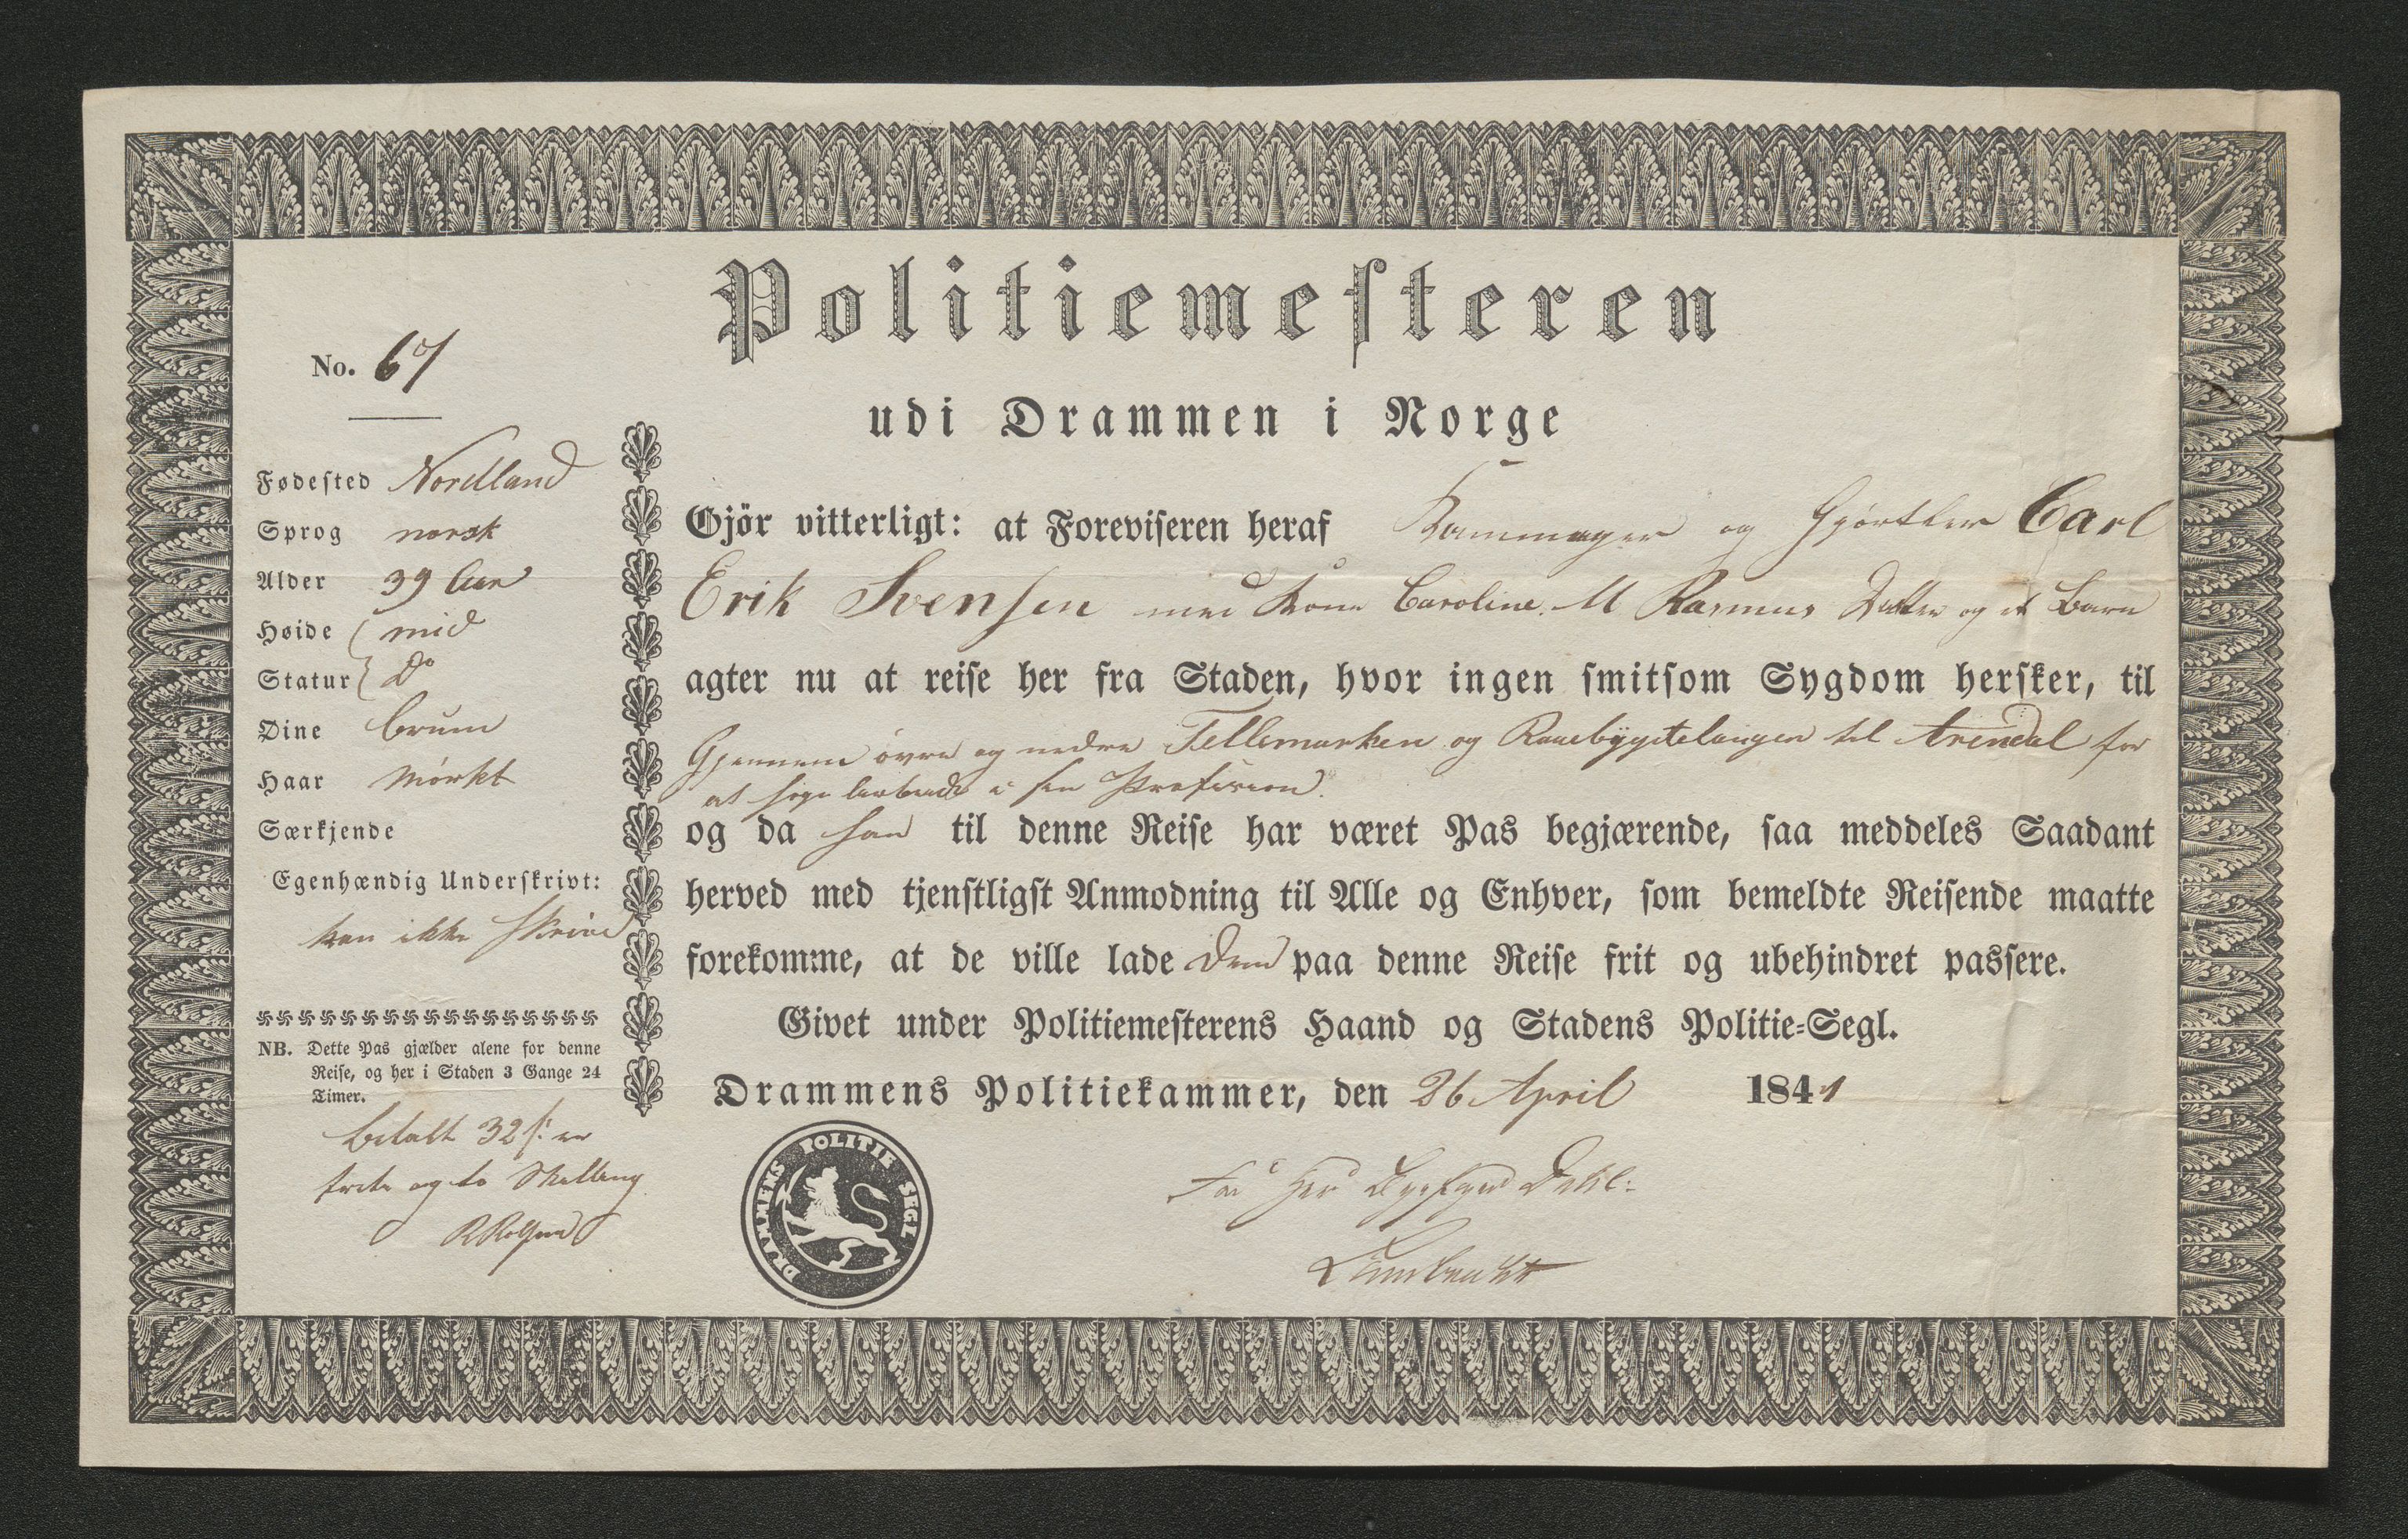 Politiemesteren
udi Drammen i Norge
No. 67
Fødested Nordland
Sprog norsk
Alder 39 Aar
Høide mid
Statur Do
Øine brune
Haar Mørkt
Særkjende
Egenhændig Underskrivt:
kan ikke skrive
NB. Dette Pas gjælder alene for denne
Reise, og her i Staden 3 Gange 24
Timer.
betalt 32 s: er
treti og to Skilling
Gjör vitterligt: at Foreviseren heraf Kammager og Gjørtler Carl
Erik Svensen med Kone Caroline M Rasmus Datter og et Barn
agter nu at reise her fra Staden, hvor ingen smitsom Sygdom hersker, til
Gjennem øvre og nedre Tellemarken og Raaebygdelauget til Arendal for
at søge Arbeide i sin Profesion.
og da han til denne Reise har været Pas begjærende, saa meddeles Saadant
herved med tjenstligst Anmodning til Alle og Enhver, som bemeldte Reisende maatte
forekomme, at de ville lade dem paa denne Reise frit og ubehindret passere.
Givet under Politiemesterens Haand og Stadens Politie=Segl.
Drammens Politiekammer, den 26 April 1841
DRAMMENS POLITIE SEGL